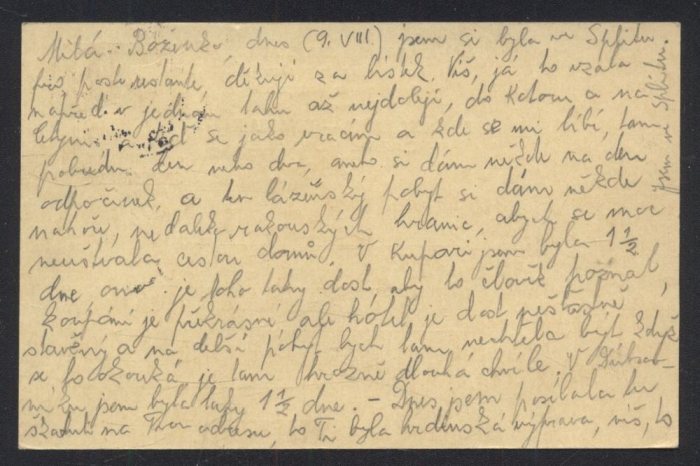 Milá Boženko, dnes (9. VIII) jsem si byla ve Splitu
pro poste restante, děkuji za lístek. Víš, já to vzala
napřed v jednom tahu až nejdolejí, do Kotoru a na
a teď se jako vracím a kde se mi líbí, tam
pobudu den nebo dva, anebo si dám někde na den
odpočinek, a ten lázeňský pobyt si dám někde
nahoře, nedaleko rakouských hranic, abych se moc
neuštvala cestou domů. V Kupari jsem byla 1½
dne je toho taky dost aby to člověk poznal,
koupání je překrásné ale hôtel je dost nešťastně
stavěný a na delší pobyt bych tam nechtěla být když
se je tam hrozně dlouhá chvíle. V Dubrov-
níku jsem byla taky 1½ dne. – Dnes jsem posílala tu
na Tvou adresu, to Ti byla hrdinská výprava, víš, to
jsem ve Splitu.